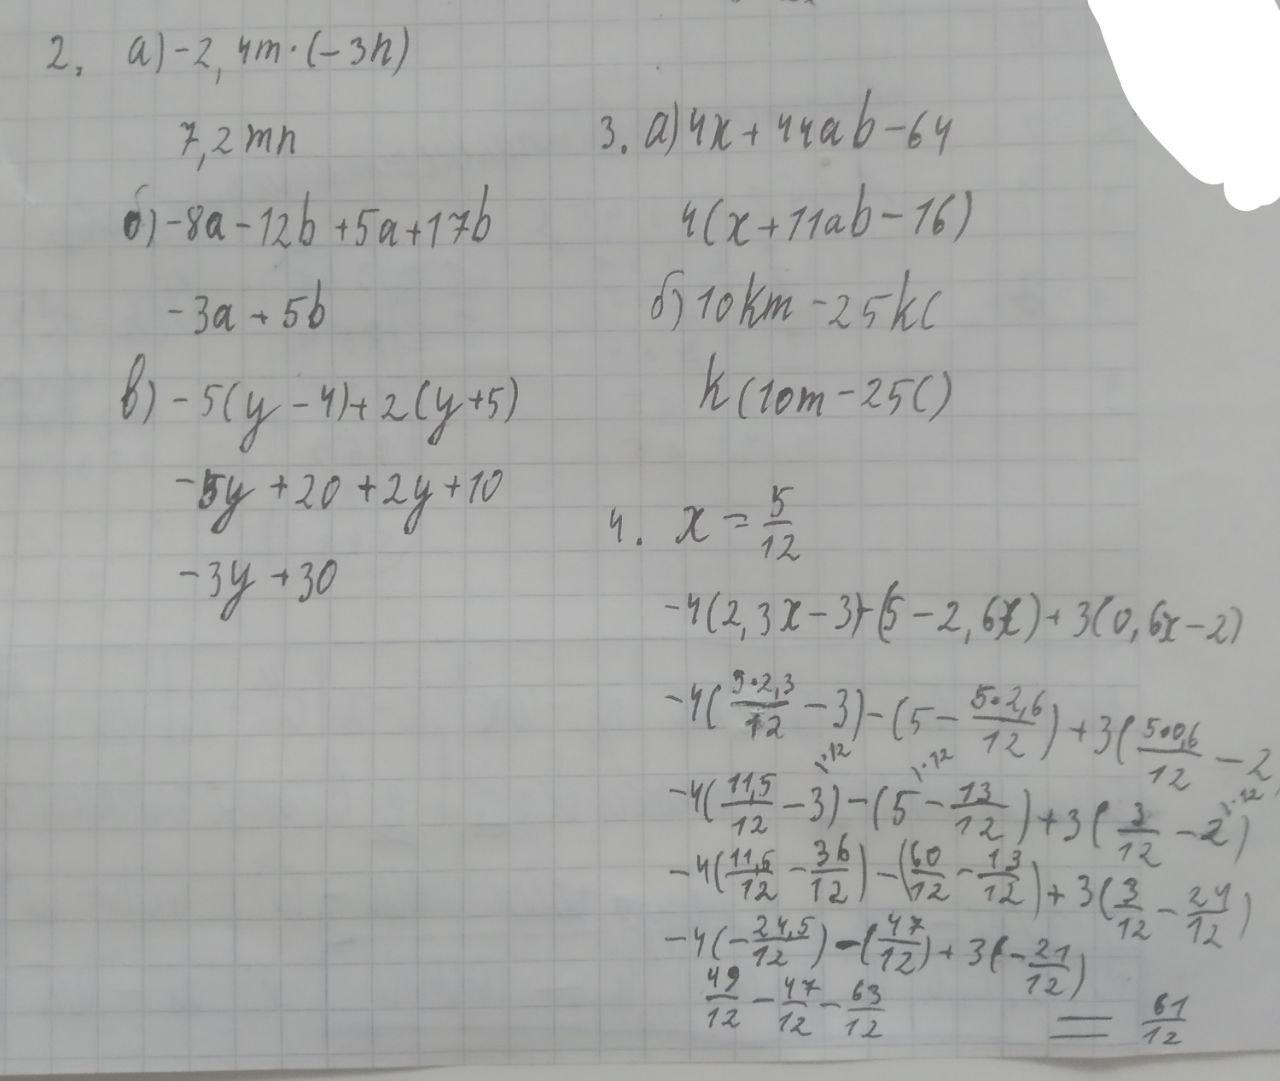 2. а) -2,4m·(-3n)
7,2mn
б) -8a-12b+5a+17b
-3a+5b
в) -5(y-4)+2(y+5)
-5y+20+2y+10
-3y+30
3. а) 4x+44ab-64
4(x+11ab-16)
б) 10km-25kc
k(10m-25c)
4. x = 5/12
-4(2,3x-3)-(5-2,6x)+3(0,6x-2)
-4(5·2,3/12-3)-(5-5·2,6/12)+3(5·0,6/12-2
-4(11,5/12-3)-(5-13/12)+3(3/12-2)
-4(11,5/12-36/12)-(60/12-13/12)+3(3/12-24/12)
-4(-24,5/12)-(47/12)+3(-21/12)
49/12-47/12-63/12 = 61/12